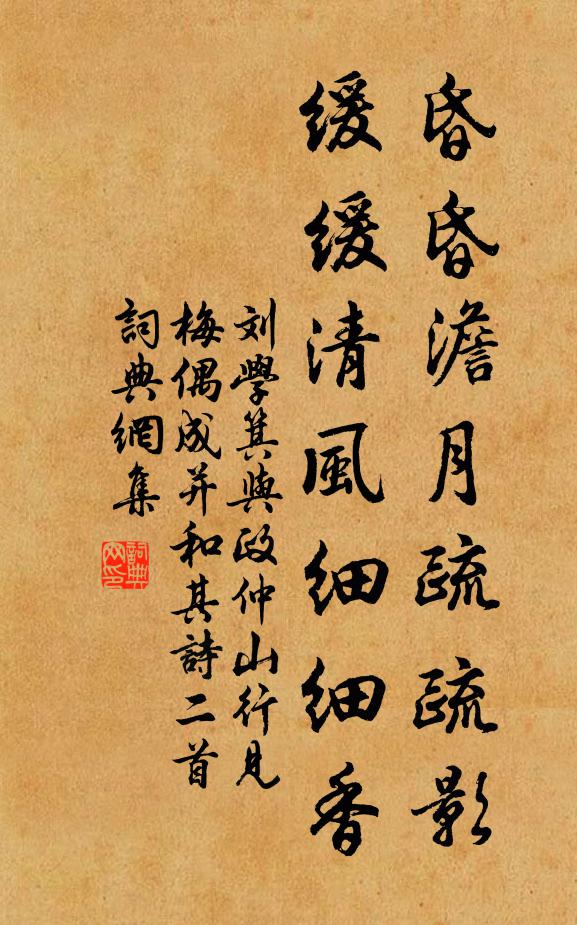 昏昏澹月疏疏影
缓缓清風细细香
刘學箕與政仲山行見
梅偶成并和其詩二首
詞典網集
詞典
网印